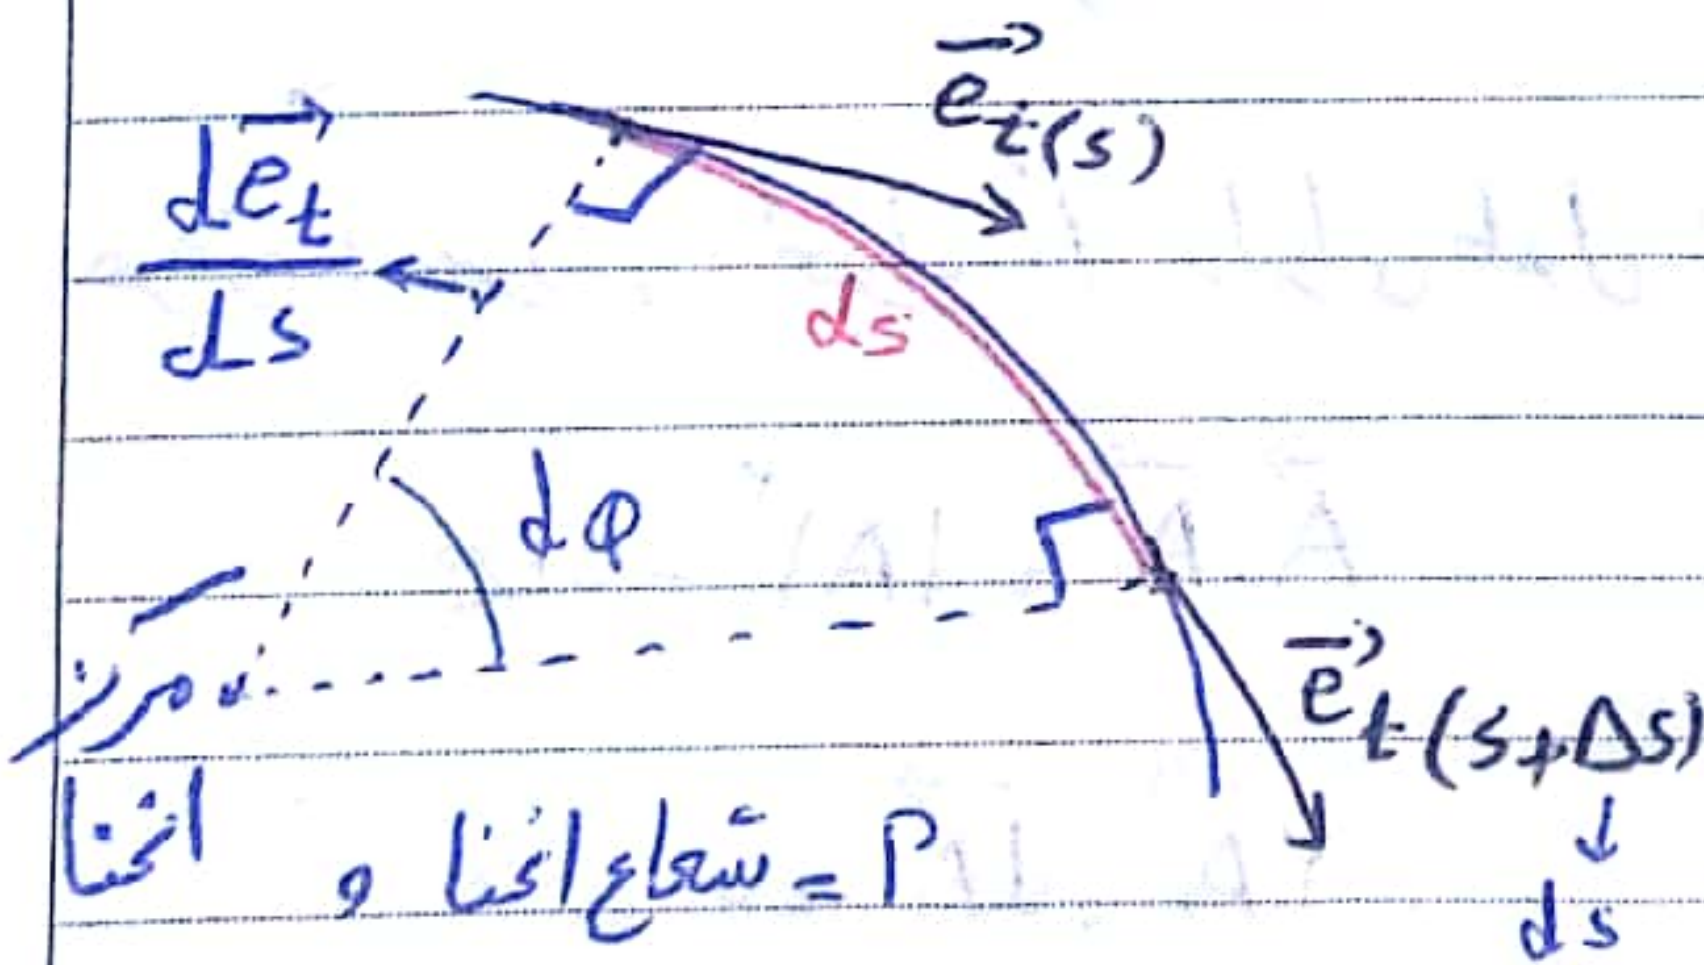 e⃗t(s)
de⃗t/ds
ds
dφ
مرکز
انحنا
e⃗t(s+Δs)
↓
ds
ρ = شعاع انحنا و